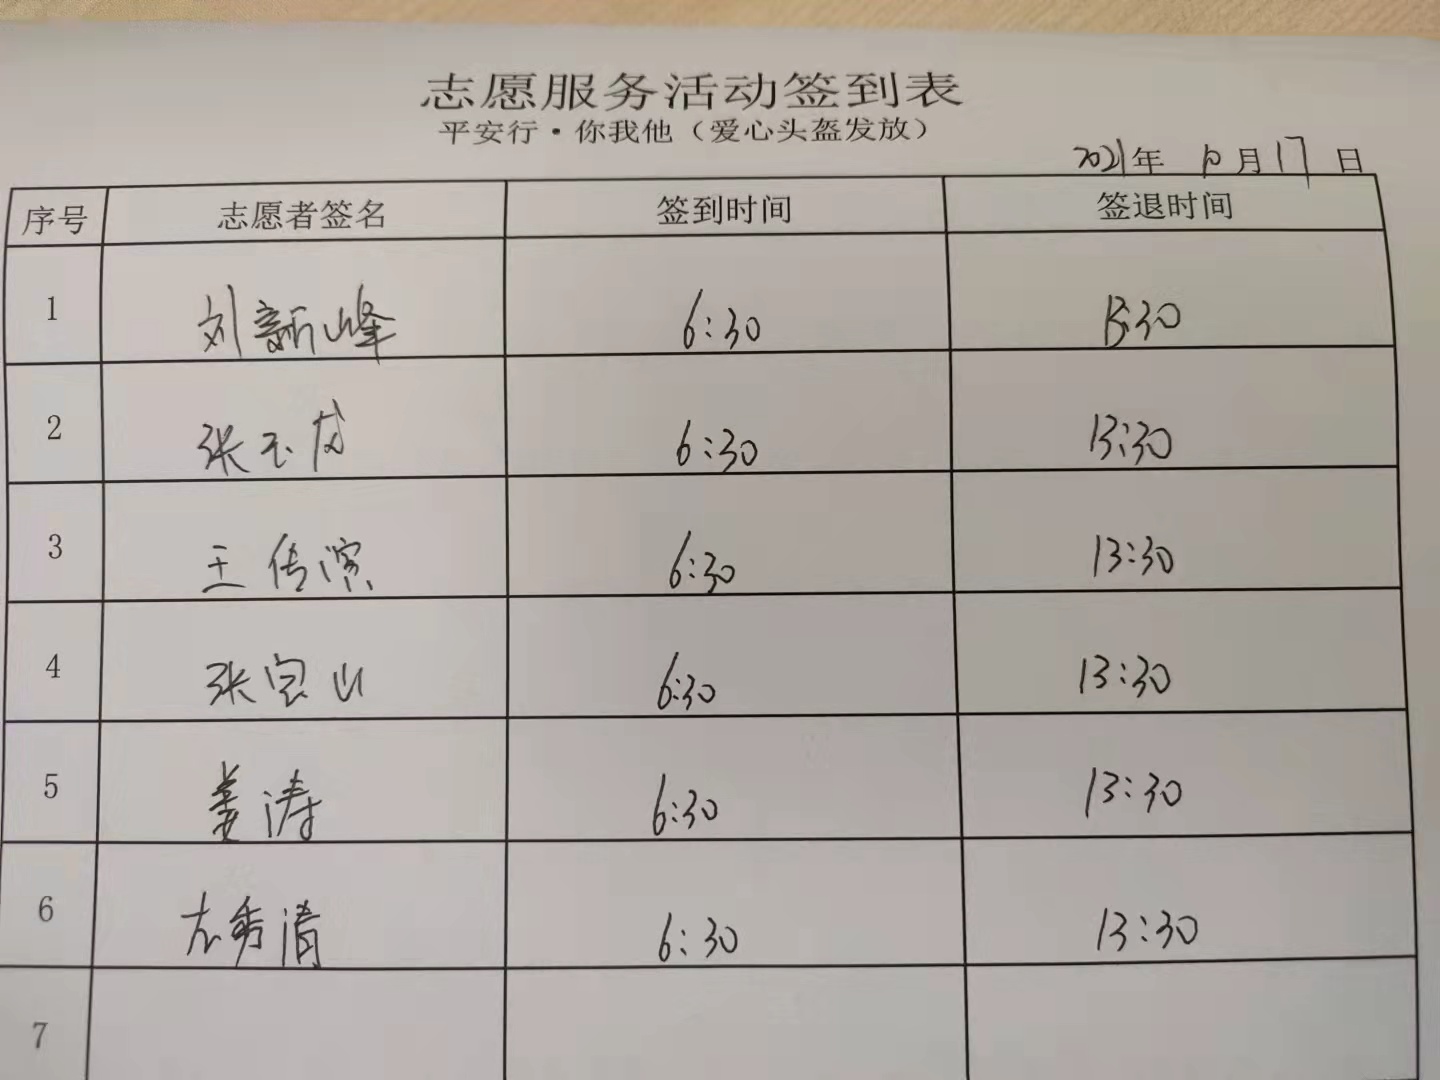 志愿服务活动签到表
平安行·你我他（爱心头盔发放）
2021年 10月17日
序号 志愿者签名 签到时间 签退时间
1 刘新峰 6:30 13:30
2 张玉龙 6:30 13:30
3 王传滨 6:30 13:30
4 张宝山 6:30 13:30
5 姜涛 6:30 13:30
6 左秀清 6:30 13:30
7